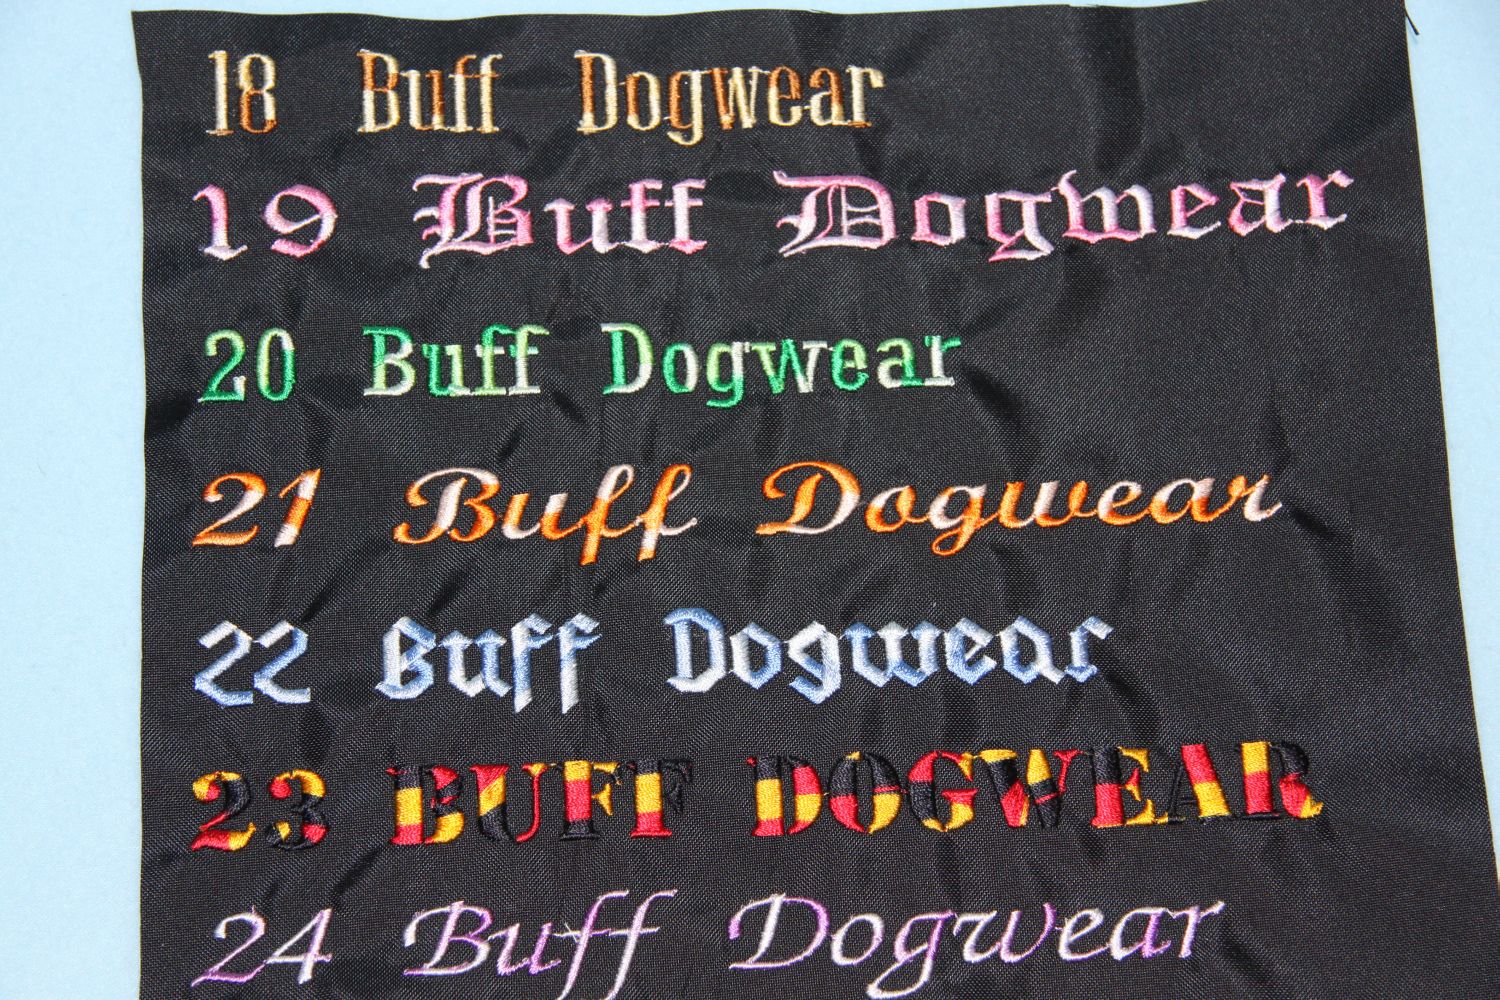 18 Buff Dogwear
19 Buff Dogwear
20 Buff Dogwear
21 Buff Dogwear
22 Buff Dogwear
23 BUFF DOGWEAR
24 Buff Dogwear